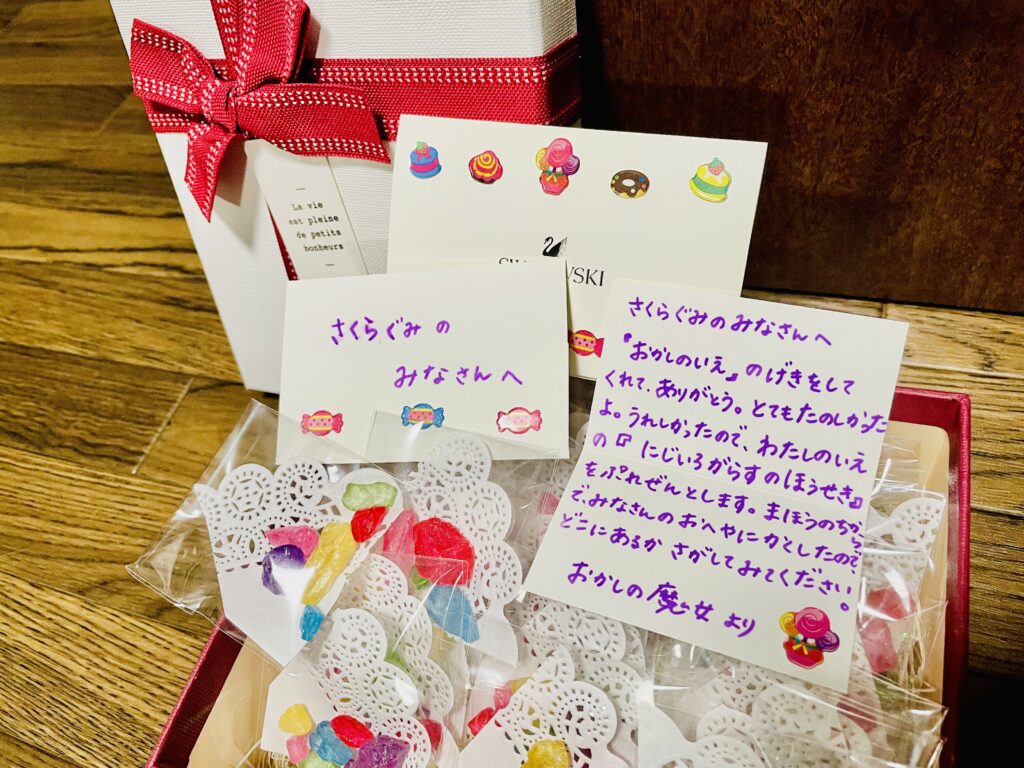 La vie
est pleine
de petits
bonheurs
さくらぐみの
みなさんへ
さくらぐみのみなさんへ
『おかしのいえ』のげきをして
くれて、ありがとう。とてもたのしかった
よ。うれしかったので、わたしのいえ
の『にじいろがらすのほうせき』
をぷれぜんとします。まほうのちから
でみなさんのおへやにかくしたので
どこにあるか さがしてみてください。
おかしの魔女より